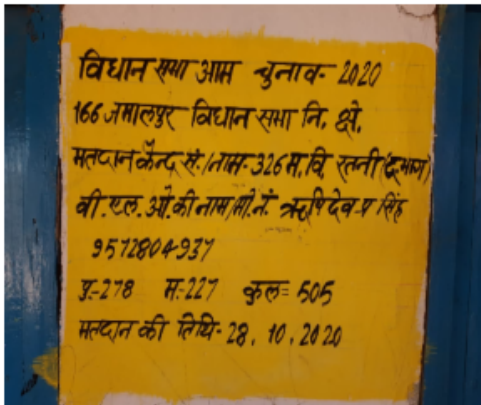 विधान सभा आम चुनाव- 2020
166 जमालपुर विधान सभा नि. क्षे.
मतदान केन्द्र सं./नाम- 326 म. वि. रतनी (द. भाग)
बी. एल. ओ. की नाम/मो. नं. ऋषिदेव प्र सिंह
9572804937
पु.-278 म:-227 कुल= 505
मतदान की तिथि- 28. 10. 2020